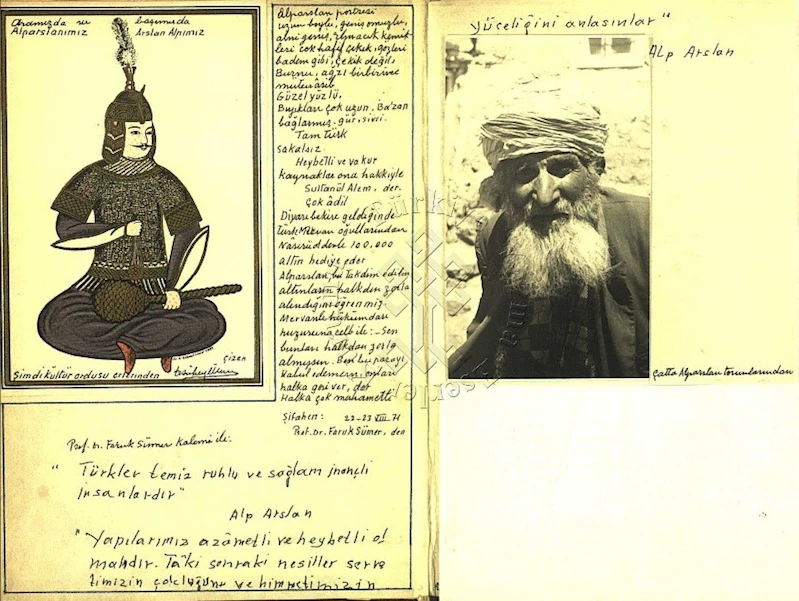 Aramızda ve başımızda
Alparslanımız Arslan Alpımız
çizen
Şimdi kültür ordusu erlerinden
Alparslan portresi
uzun boylu, geniş omuzlu,
alnı geniş, elmacık kemik
leri çok hafif çekik, gözleri
badem gibi, çekik değil,
Burnu, ağzı birbirine
mütenâsib
Güzel yüzlü,
Bıyıkları çok uzun, Ba'zan
bağlarmış, gür, sivri.
Tam Türk
Sakalsız
Heybetli ve vakur
kaynaklar ona hakkiyle
Sultanül Alem, der.
Çok âdil
Diyarıbekire geldiğinde
Türk Mervan oğullarından
Nâsırüddevle 100.000
altın hediye eder
Alparslan, bu takdim edilen
altınların halkdan zorla
alındığını öğrenmiş
Mervanlı hükümdarı
huzuruna celb ile: - Sen
bunları halkdan zorla
almışsın. Ben bu parayı
kabul edemem, onları
halka geri ver, der
Halka çok merhametli
Şifahen: 22-23 VIII 71
Prof. Dr. Faruk Sümer, den
Prof. Dr. Faruk Sümer Kalemi ile:
"Türkler temiz ruhlu ve sağlam inançlı
insanlardır"
Alp Arslan
"Yapılarımız azâmetli ve heybetli ol
malıdır. Tâ'ki sonraki nesiller serve
timizin çokluğunu ve himmetimizin
yüceliğini anlasınlar"
Alp Arslan
Çatta Alparslan torunlarından